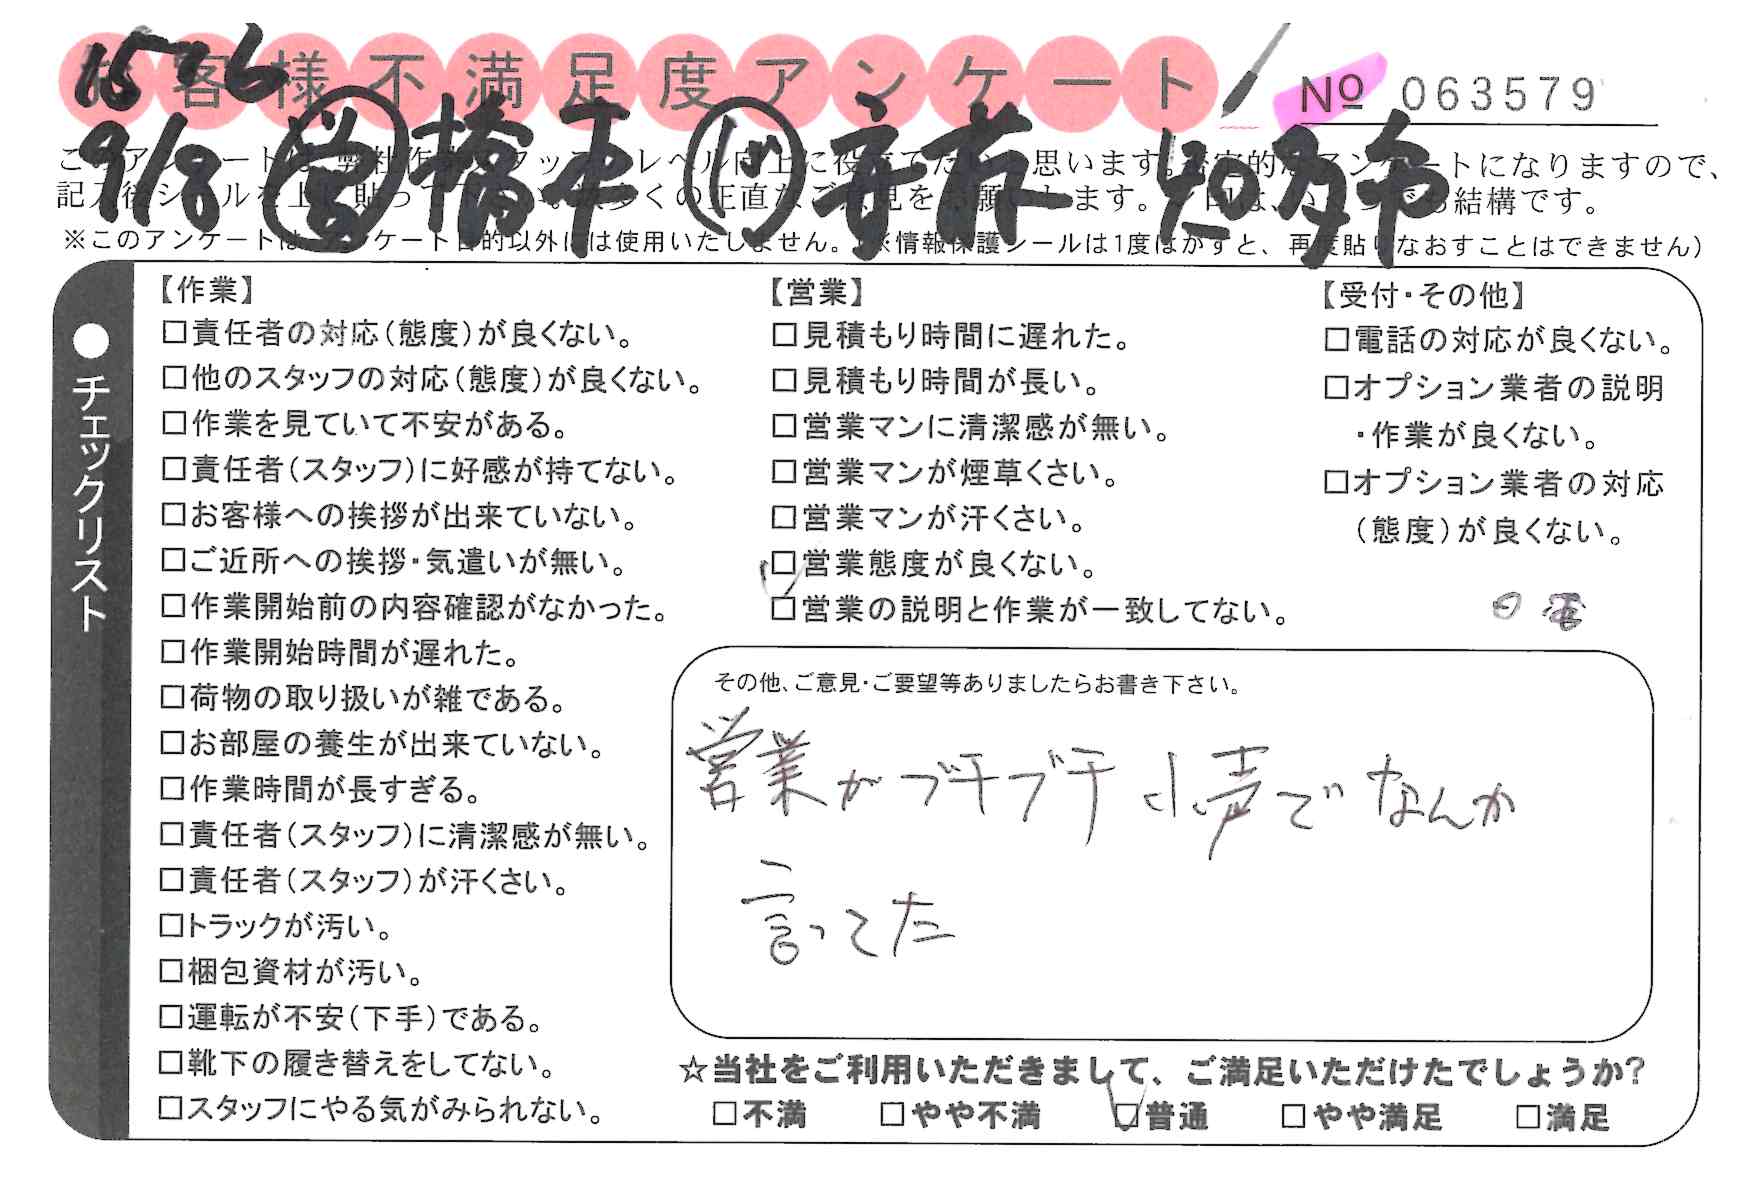 お客様不満足度アンケート
№ 063579
1576
9/8 営 橋本 リ 主前 知多市
このアンケートは、弊社作業スタッフのレベル向上に役立てたいと思います。否定的なアンケートになりますので、
記入後シールを上に貼って下さい。数多くの正直なご意見をお願いします。
※このアンケートは、アンケート目的以外には使用いたしません。(※情報保護シールは1度はがすと、再度貼りなおすことはできません)
●チェックリスト
【作業】
□責任者の対応(態度)が良くない。
□他のスタッフの対応(態度)が良くない。
□作業を見ていて不安がある。
□責任者(スタッフ)に好感が持てない。
□お客様への挨拶が出来ていない。
□ご近所への挨拶・気遣いが無い。
□作業開始前の内容確認がなかった。
□作業開始時間が遅れた。
□荷物の取り扱いが雑である。
□お部屋の養生が出来ていない。
□作業時間が長すぎる。
□責任者(スタッフ)に清潔感が無い。
□責任者(スタッフ)が汗くさい。
□トラックが汚い。
□梱包資材が汚い。
□運転が不安(下手)である。
□靴下の履き替えをしてない。
□スタッフにやる気がみられない。
【営業】
□見積もり時間に遅れた。
□見積もり時間が長い。
□営業マンに清潔感が無い。
□営業マンが煙草くさい。
□営業マンが汗くさい。
□営業態度が良くない。
□営業の説明と作業が一致してない。
【受付・その他】
□電話の対応が良くない。
□オプション業者の説明
・作業が良くない。
□オプション業者の対応
(態度)が良くない。
その他、ご意見・ご要望等ありましたらお書き下さい。
営業がブチブチ小声でなんか
言ってた
☆当社をご利用いただきまして、ご満足いただけたでしょうか?
□不満 □やや不満 ☑普通 □やや満足 □満足